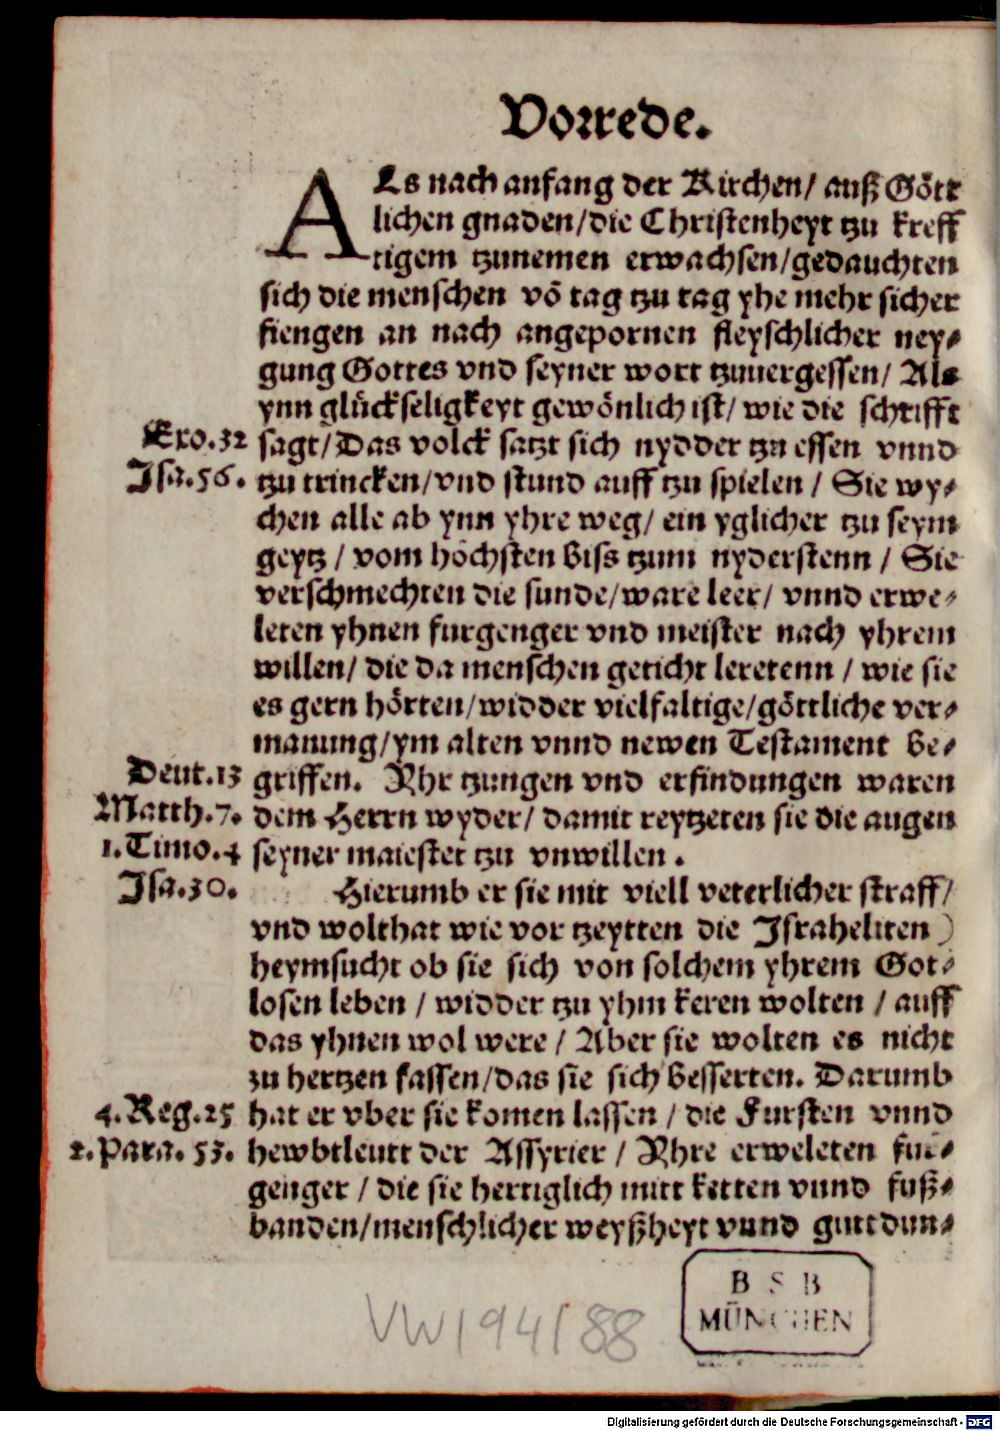 Vorrede.
ALs nach anfang der Kirchen/ auß Gött
lichen gnaden/die Christenheyt tzu kreff
tigem tzunemen erwachsen/gedauchten
sich die menschen võ tag tzu tag yhe mehr sicher
fiengen an nach angepornen fleyschlicher ney⸗
gung Gottes vnd seyner wort tzuuergessen/ Als
ynn glückseligkeyt gewönlich ist/ wie die schrifft
Exo.32 sagt/Das volck satzt sich nydder tzu essen vnnd
Isa.56. tzu trincken/vnd stund auff tzu spielen / Sie wy⸗
chen alle ab ynn yhre weg/ ein yglicher tzu seym
geytz / vom höchsten biss tzum nyderstenn / Sie
verschmechten die sunde/ware leer/ vnnd erwe⸗
leten yhnen furgenger vnd meister nach yhrem
willen/ die da menschen geticht leretenn / wie sie
es gern hörten/widder vielfaltige/göttliche ver⸗
manung/ym alten vnnd newen Testament be⸗
Deut.13 griffen. Yhr tzungen vnd erfindungen waren
Matth.7. dem Herrn wyder/ damit reytzeten sie die augen
1.Timo.4 seyner maiestet tzu vnwillen.
Isa.30. Hierumb er sie mit viell veterlicher straff/
vnd wolthat wie vor tzeytten die Israheliten )
heymsucht ob sie sich von solchem yhrem Got⸗
losen leben / widder tzu yhm keren wolten / auff
das yhnen wol were / Aber sie wolten es nicht
zu hertzen fassen/das sie sich besserten. Darumb
4.Reg.25 hat er vber sie komen lassen / die Fursten vnnd
2.Para. 53. hewbtleutt der Assyrier / Yhre erweleten fur⸗
genger / die sie hertiglich mitt ketten vnnd fuß⸗
banden/menschlicher weyßheyt vnnd guttdun⸗
VW194188
B S B
MÜNCHEN
Digitalisierung gefördert durch die Deutsche Forschungsgemeinschaft - DFG